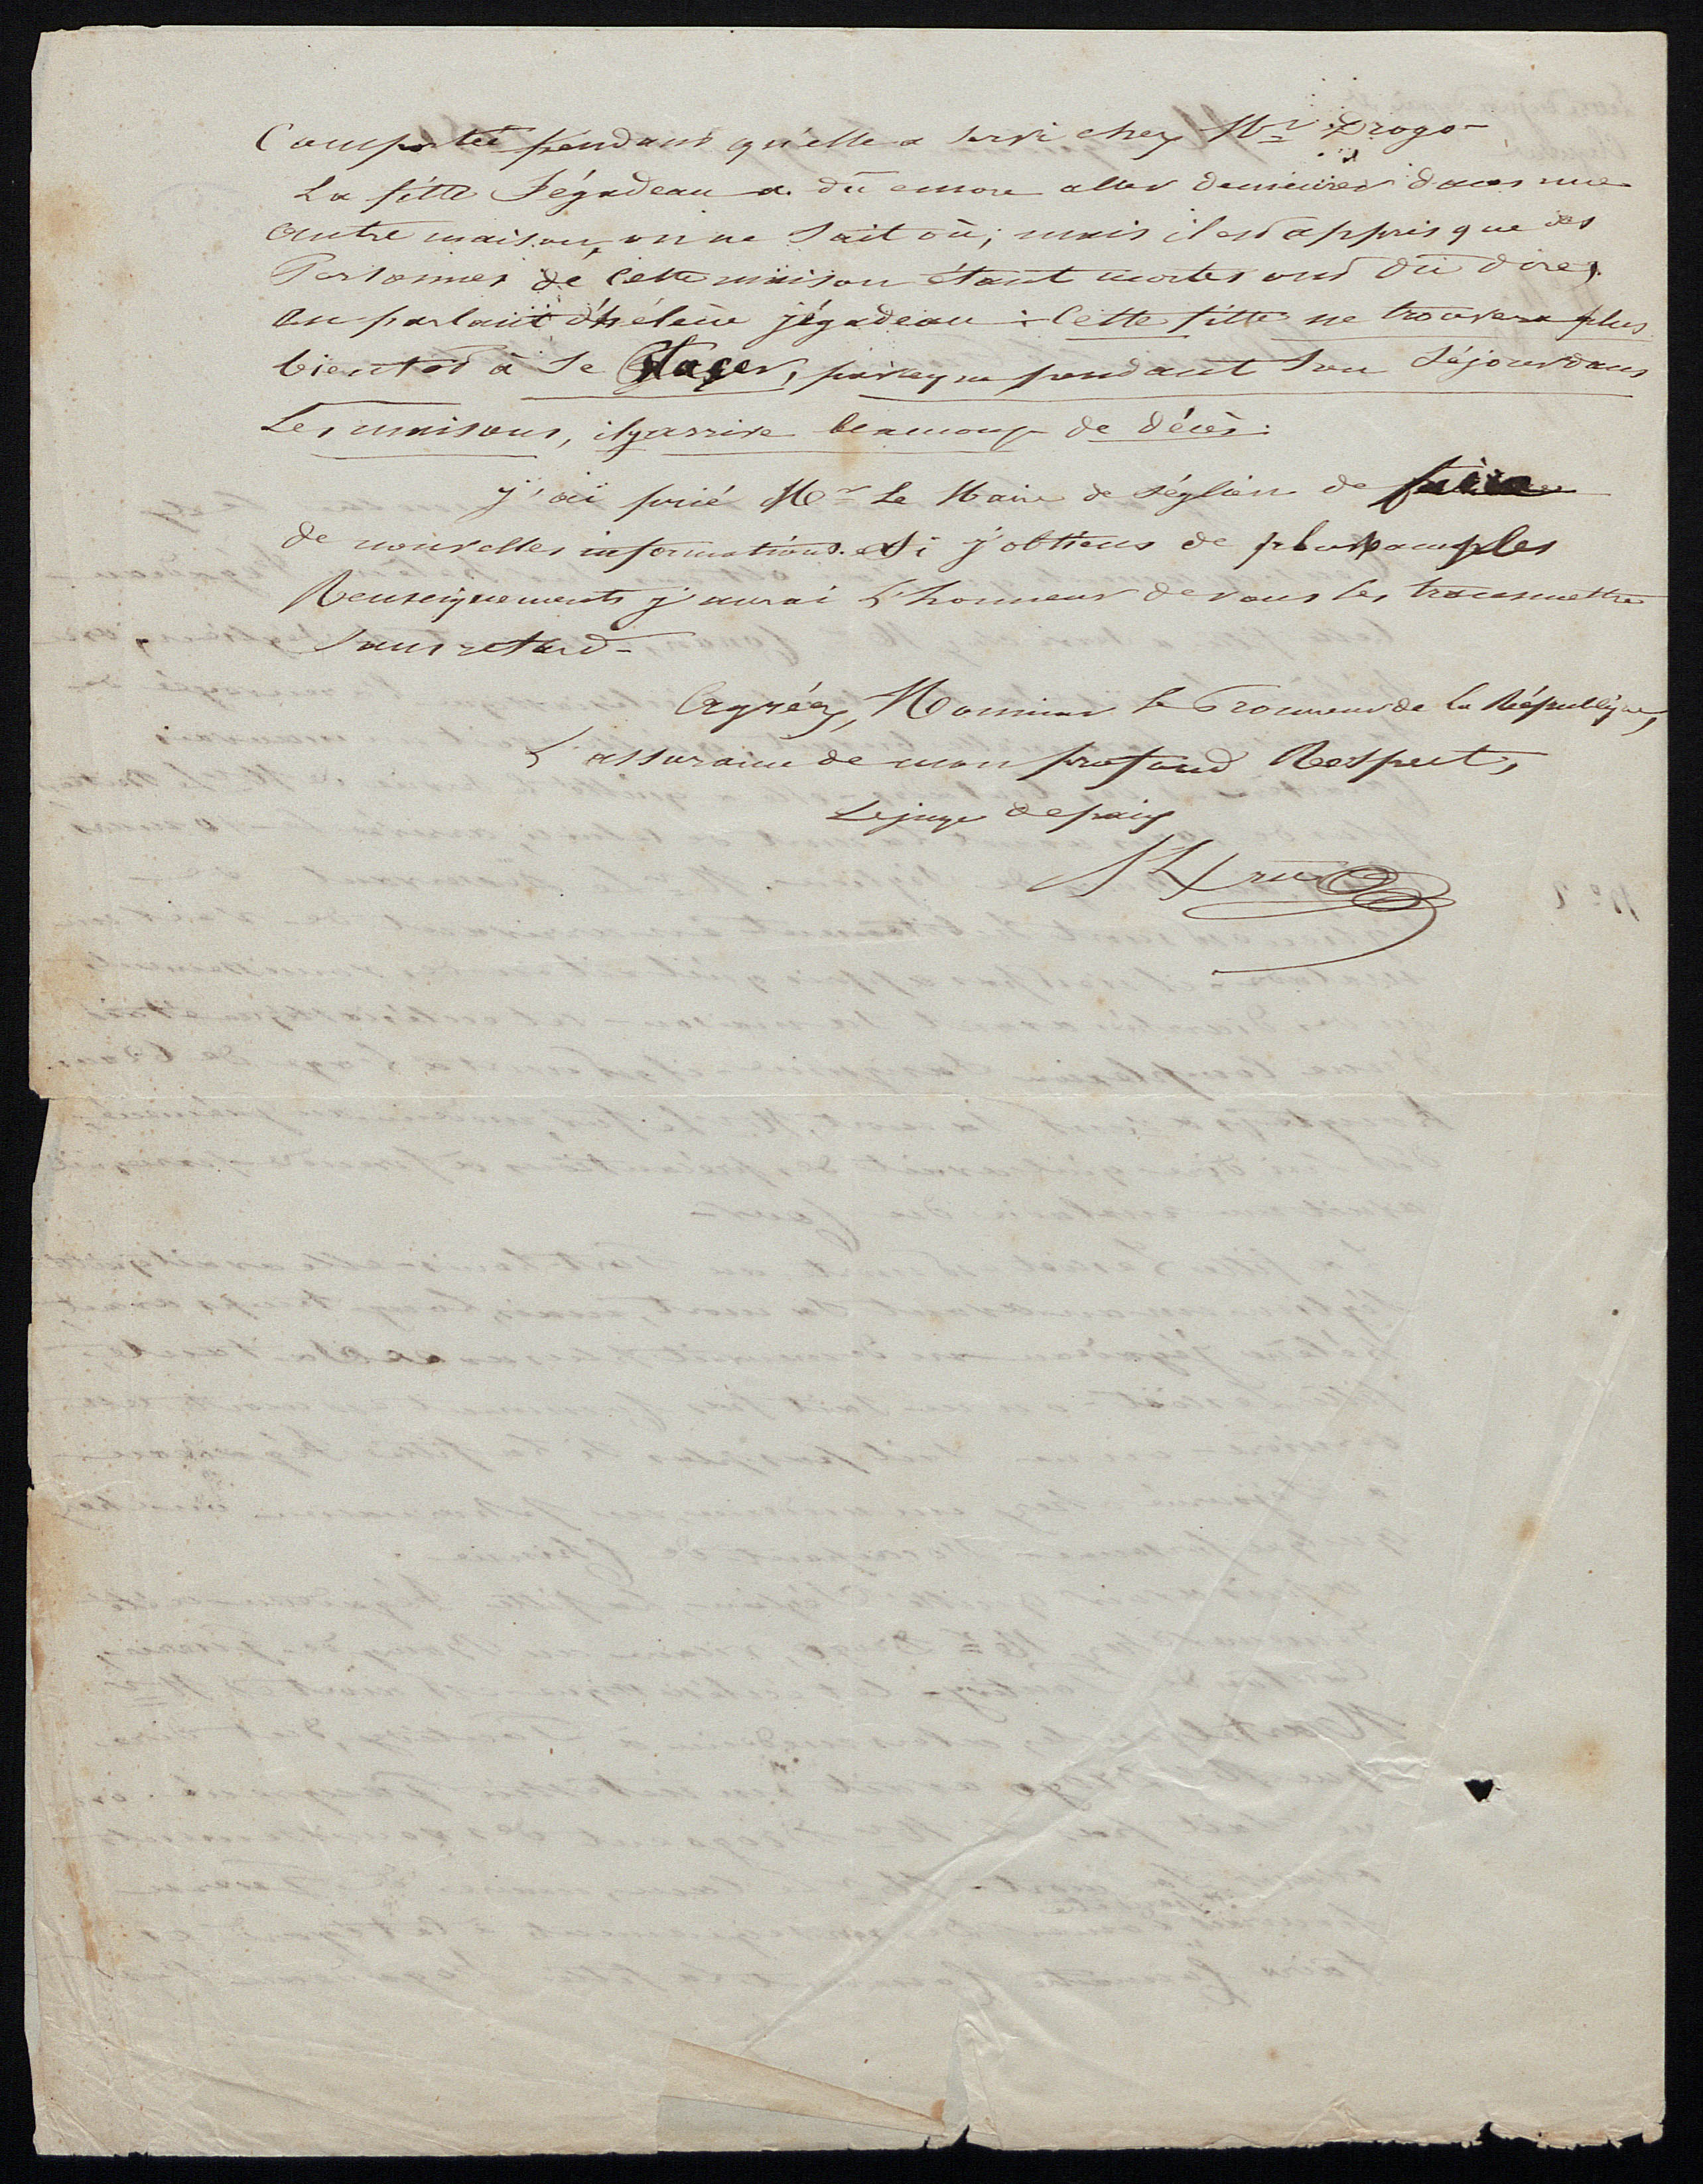 Comportée pendant qu'elle a servi chez Mr Drogo-
La fille Jégadeau a dû encore aller demeurer dans une
autre maison, on ne sait où; mais il est appris que des
Personnes de cette maison étant mortes ont dû dire,
en parlant d'hélène jégadeau : Cette fille ne trouvera plus
bientot à se Placer, parceque pendant son séjour dans
Les maisons, il y arrive beaucoup de décès.
j'ai prié Mr Le Maire de Séglien de faire
de nouvelles informations. Si j'obtiens de plus amples
Renseignements j'aurai L'honneur de vous les transmettre
Sans retard-
Agréez, Monsieur le Procureur de la République,
L'assurance de mon profond Respect,
Le juge de paix